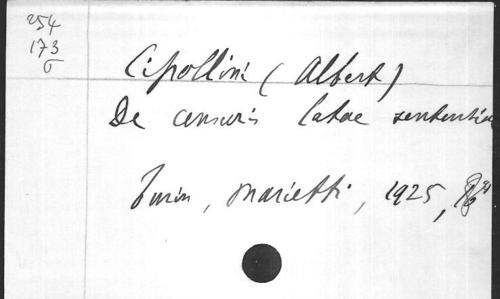 254
173
σ
Cipollini (Albert)
De censuris latae sententiae
Turin, Marietti, 1925,